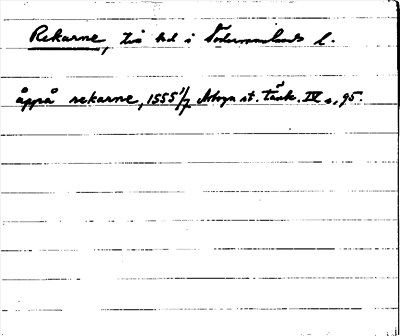 Rekarne, två hd i Södermanlands l.
åppå rekarne, 1555 1/7 st. tänk. IV s. 95.